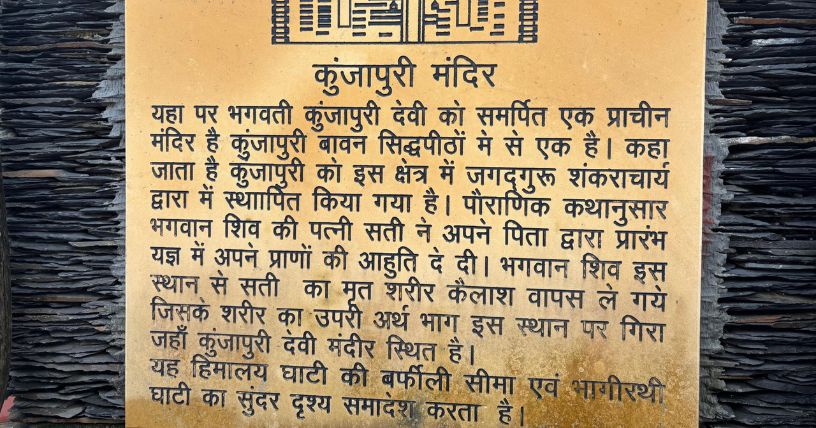 कुंजापुरी मंदिर
यहा पर भगवती कुंजापुरी देवी को समर्पित एक प्राचीन
मंदिर है कुंजापुरी बावन सिद्धपीठों मे से एक है। कहा
जाता है कुंजापुरी को इस क्षेत्र में जगद्गुरू शंकराचार्य
द्वारा में स्थाापित किया गया है। पौराणिक कथानुसार
भगवान शिव की पत्नी सती ने अपने पिता द्वारा प्रारंभ
यज्ञ में अपने प्राणों की आहुति दे दी। भगवान शिव इस
स्थान से सती का मृत शरीर कैलाश वापस ले गये
जिसके शरीर का उपरी अर्थ भाग इस स्थान पर गिरा
जहाँ कुंजापुरी देवी मंदीर स्थित है।
यह हिमालय घाटी की बर्फीली सीमा एवं भागीरथी
घाटी का सुंदर दृश्य समादेश करता है।